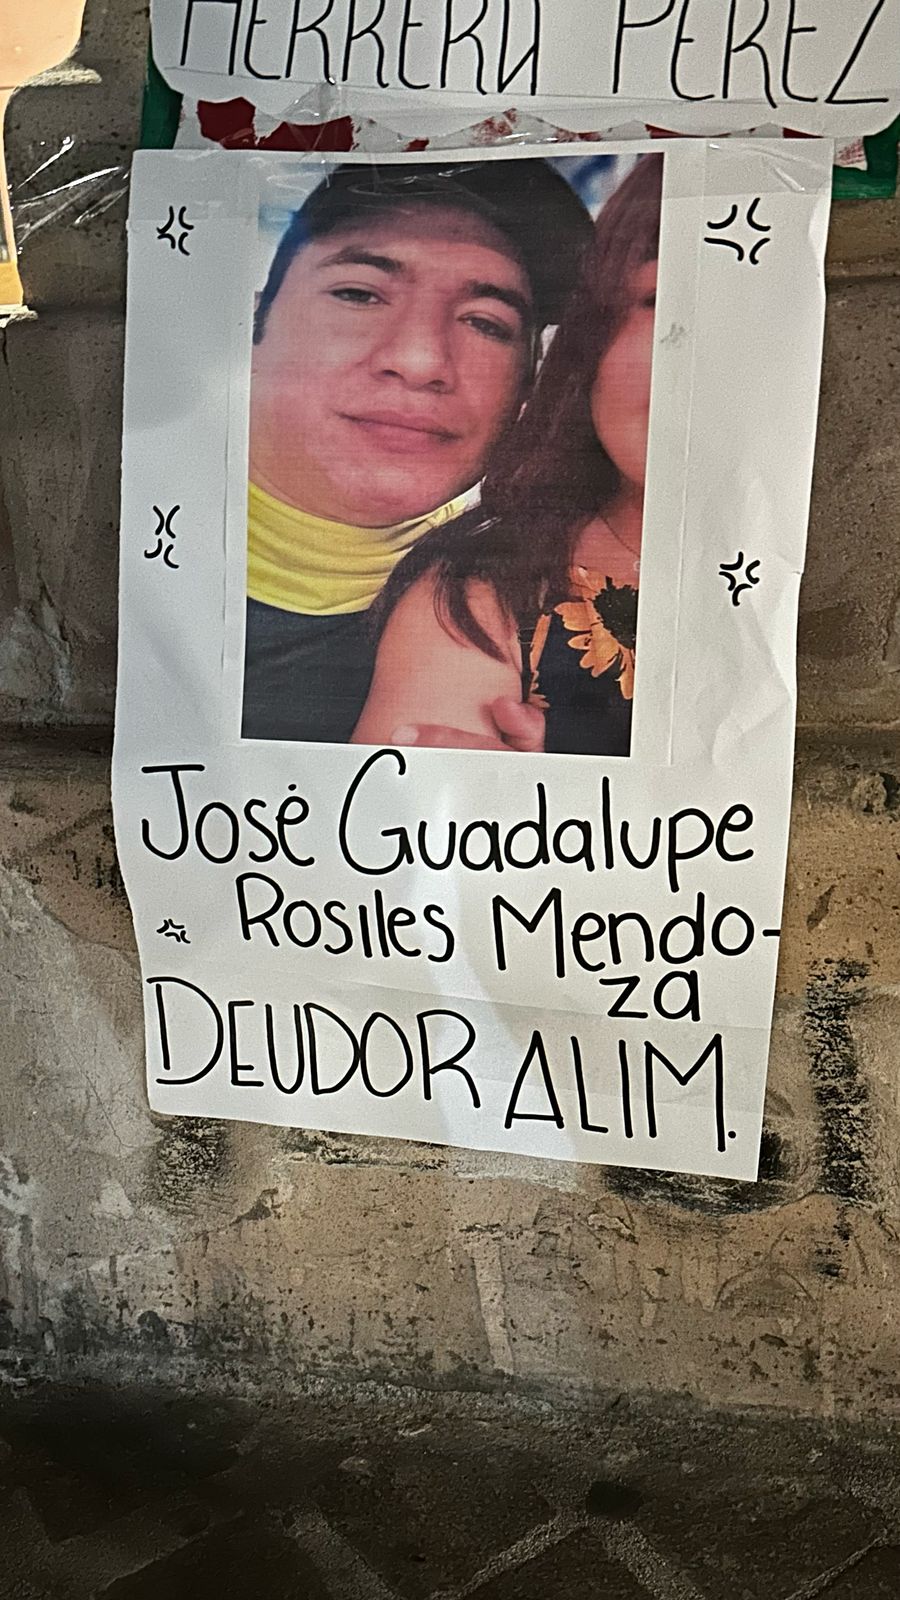 HERRERA PEREZ
José Guadalupe
Rosiles Mendo-
za
DEUDOR ALIM.